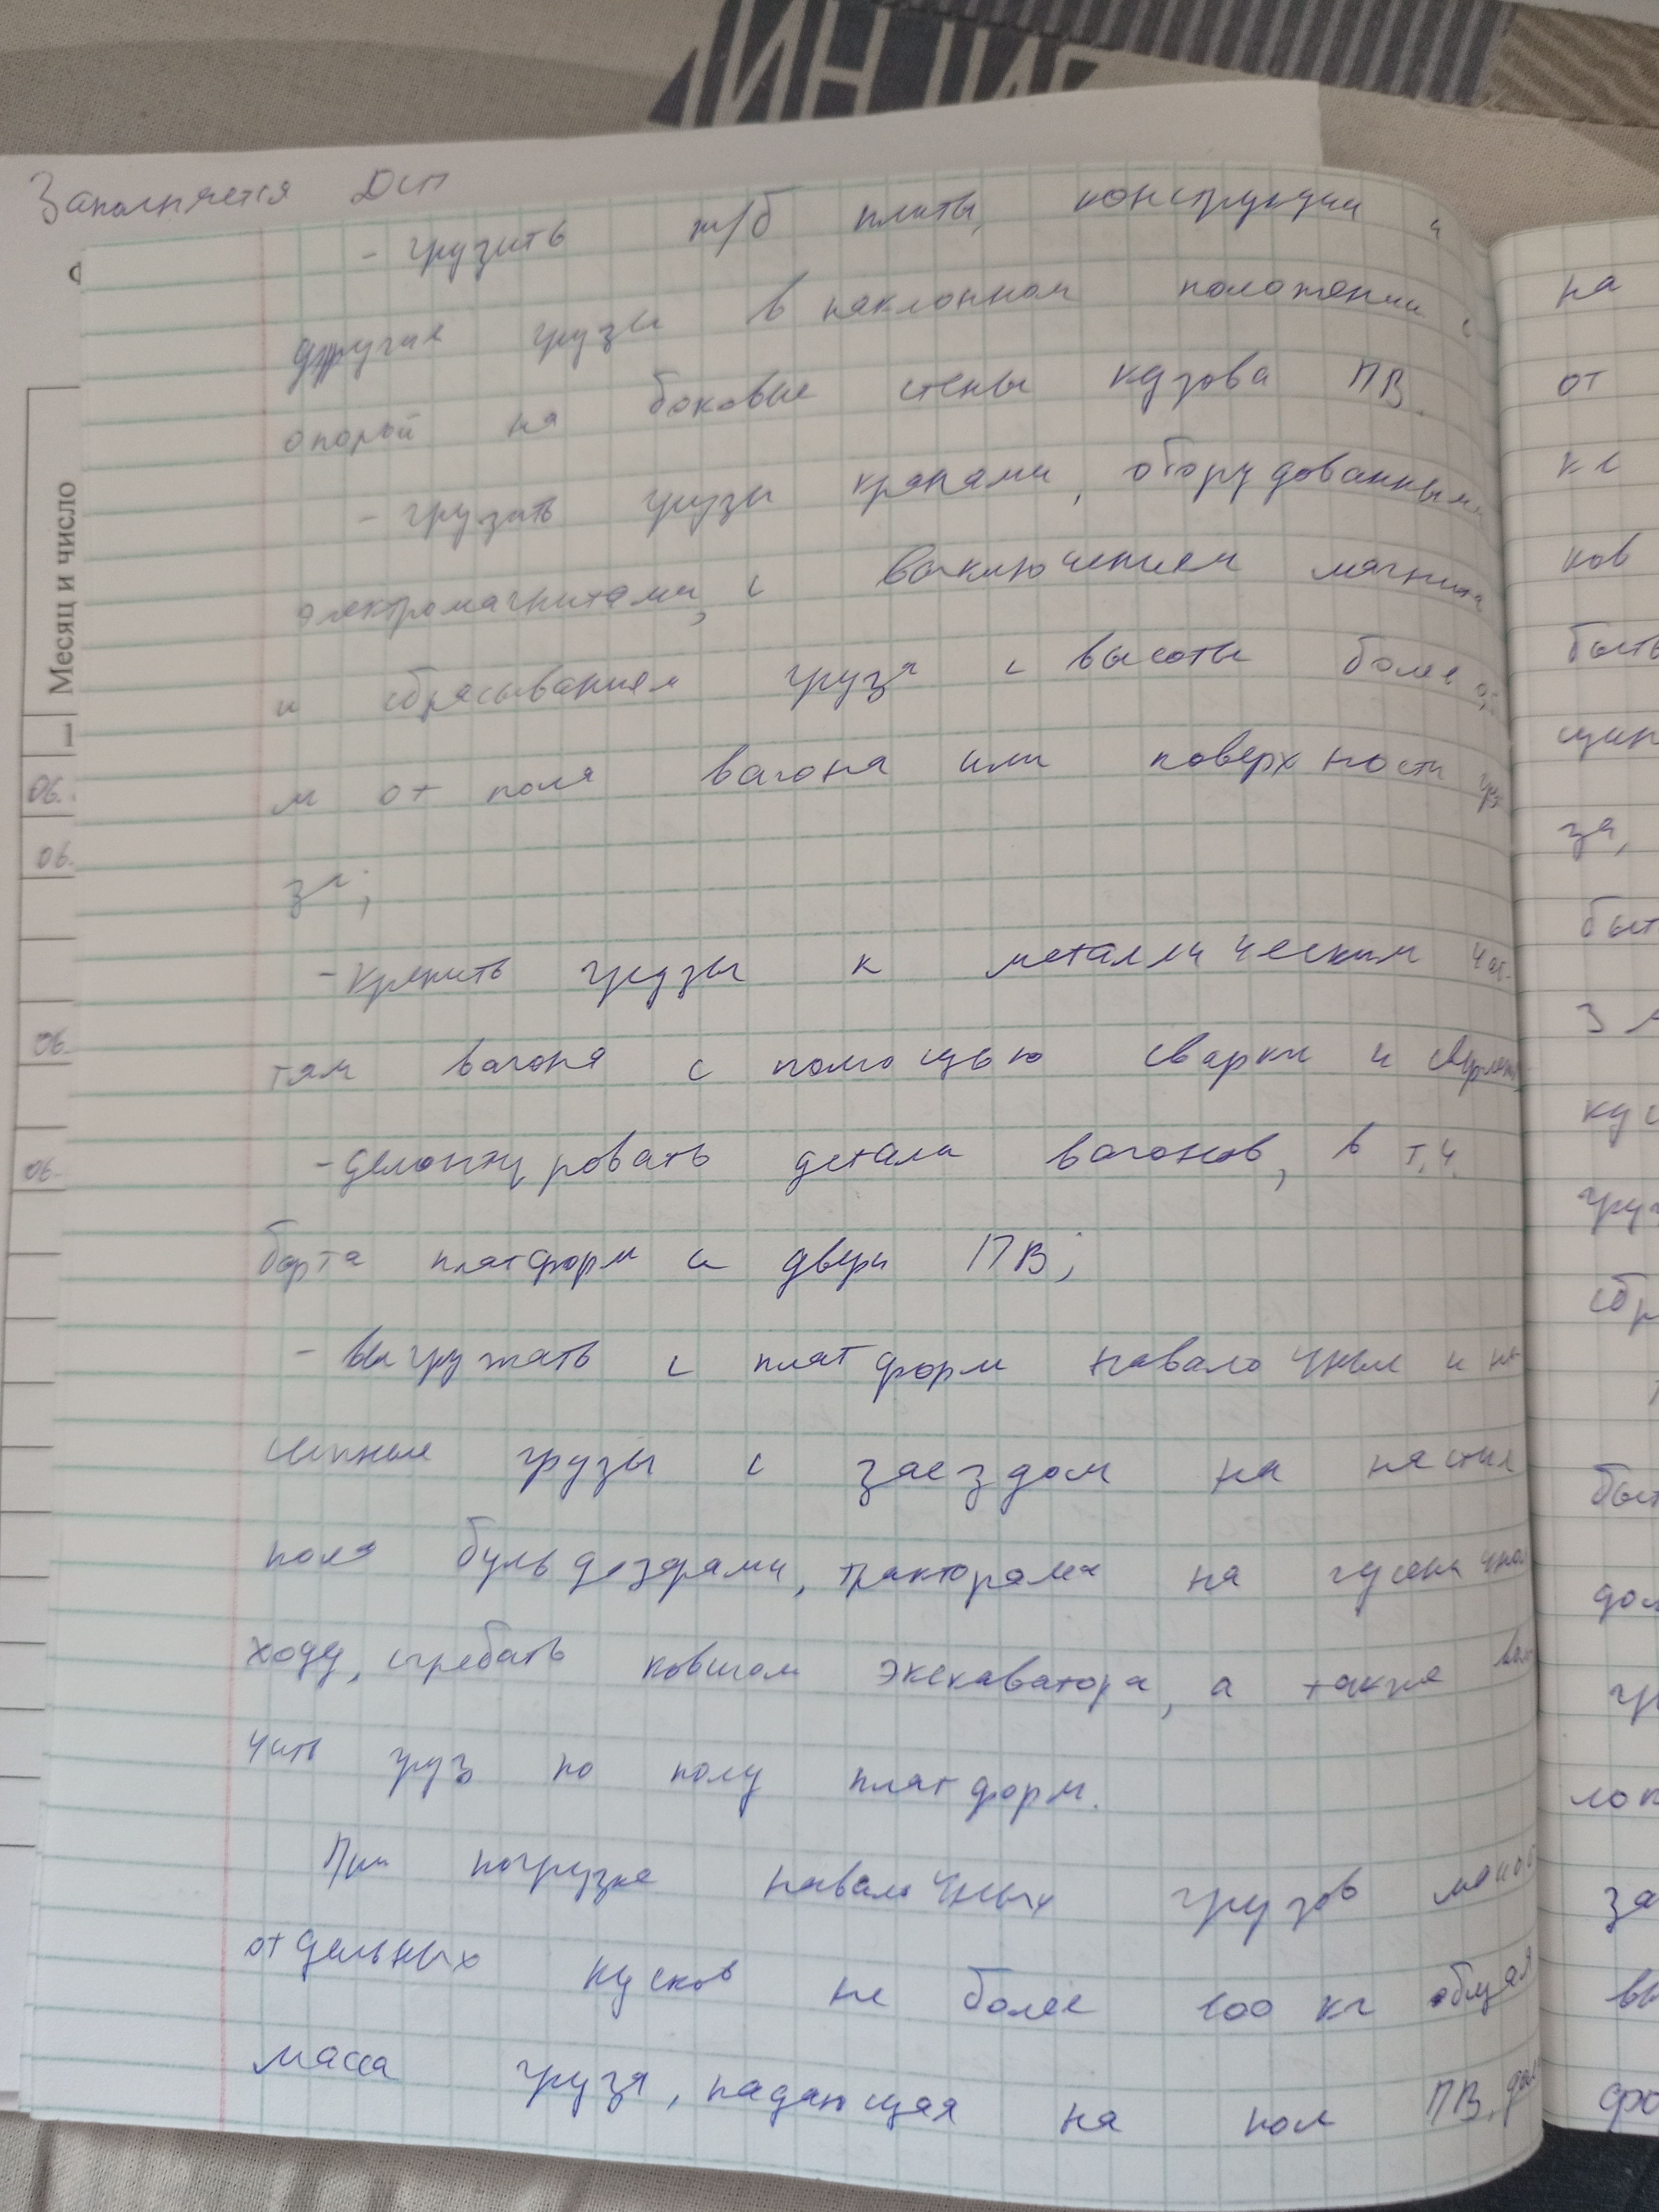 Заполняется ДСП
Месяц и число
1
06.
06.
06.
06.
- грузить ж/б плиты, конструкции и
другие грузы в наклонном положении с
опорой на боковые стены кузова ПВ.
- грузить грузы кранами, оборудованными
электромагнитами, с выключением магнита
и сбрасыванием груза с высоты более
м от пола вагона или поверхности гру
за;
- крепить грузы к металлическим час-
тям вагона с помощью сварки и сверления
- демонтировать детали вагонов, в т.ч.
борта платформ и двери ПВ;
- выгружать с платформ навалочные и на
сыпные грузы с заездом на настил
пола бульдозерами, тракторами на гусеничном
ходу, сгребать ковшом экскаватора, а также воло
чить груз по полу платформ.
При погрузке навалочных грузов массой
отдельных кусков не более 100 кг общая
масса груза, падающая на пол ПВ,
на
от
ке
ков
быть
за,
быт
3 м
кус
груз
сбр
быт
дол
гр
лок
за
вы
фо